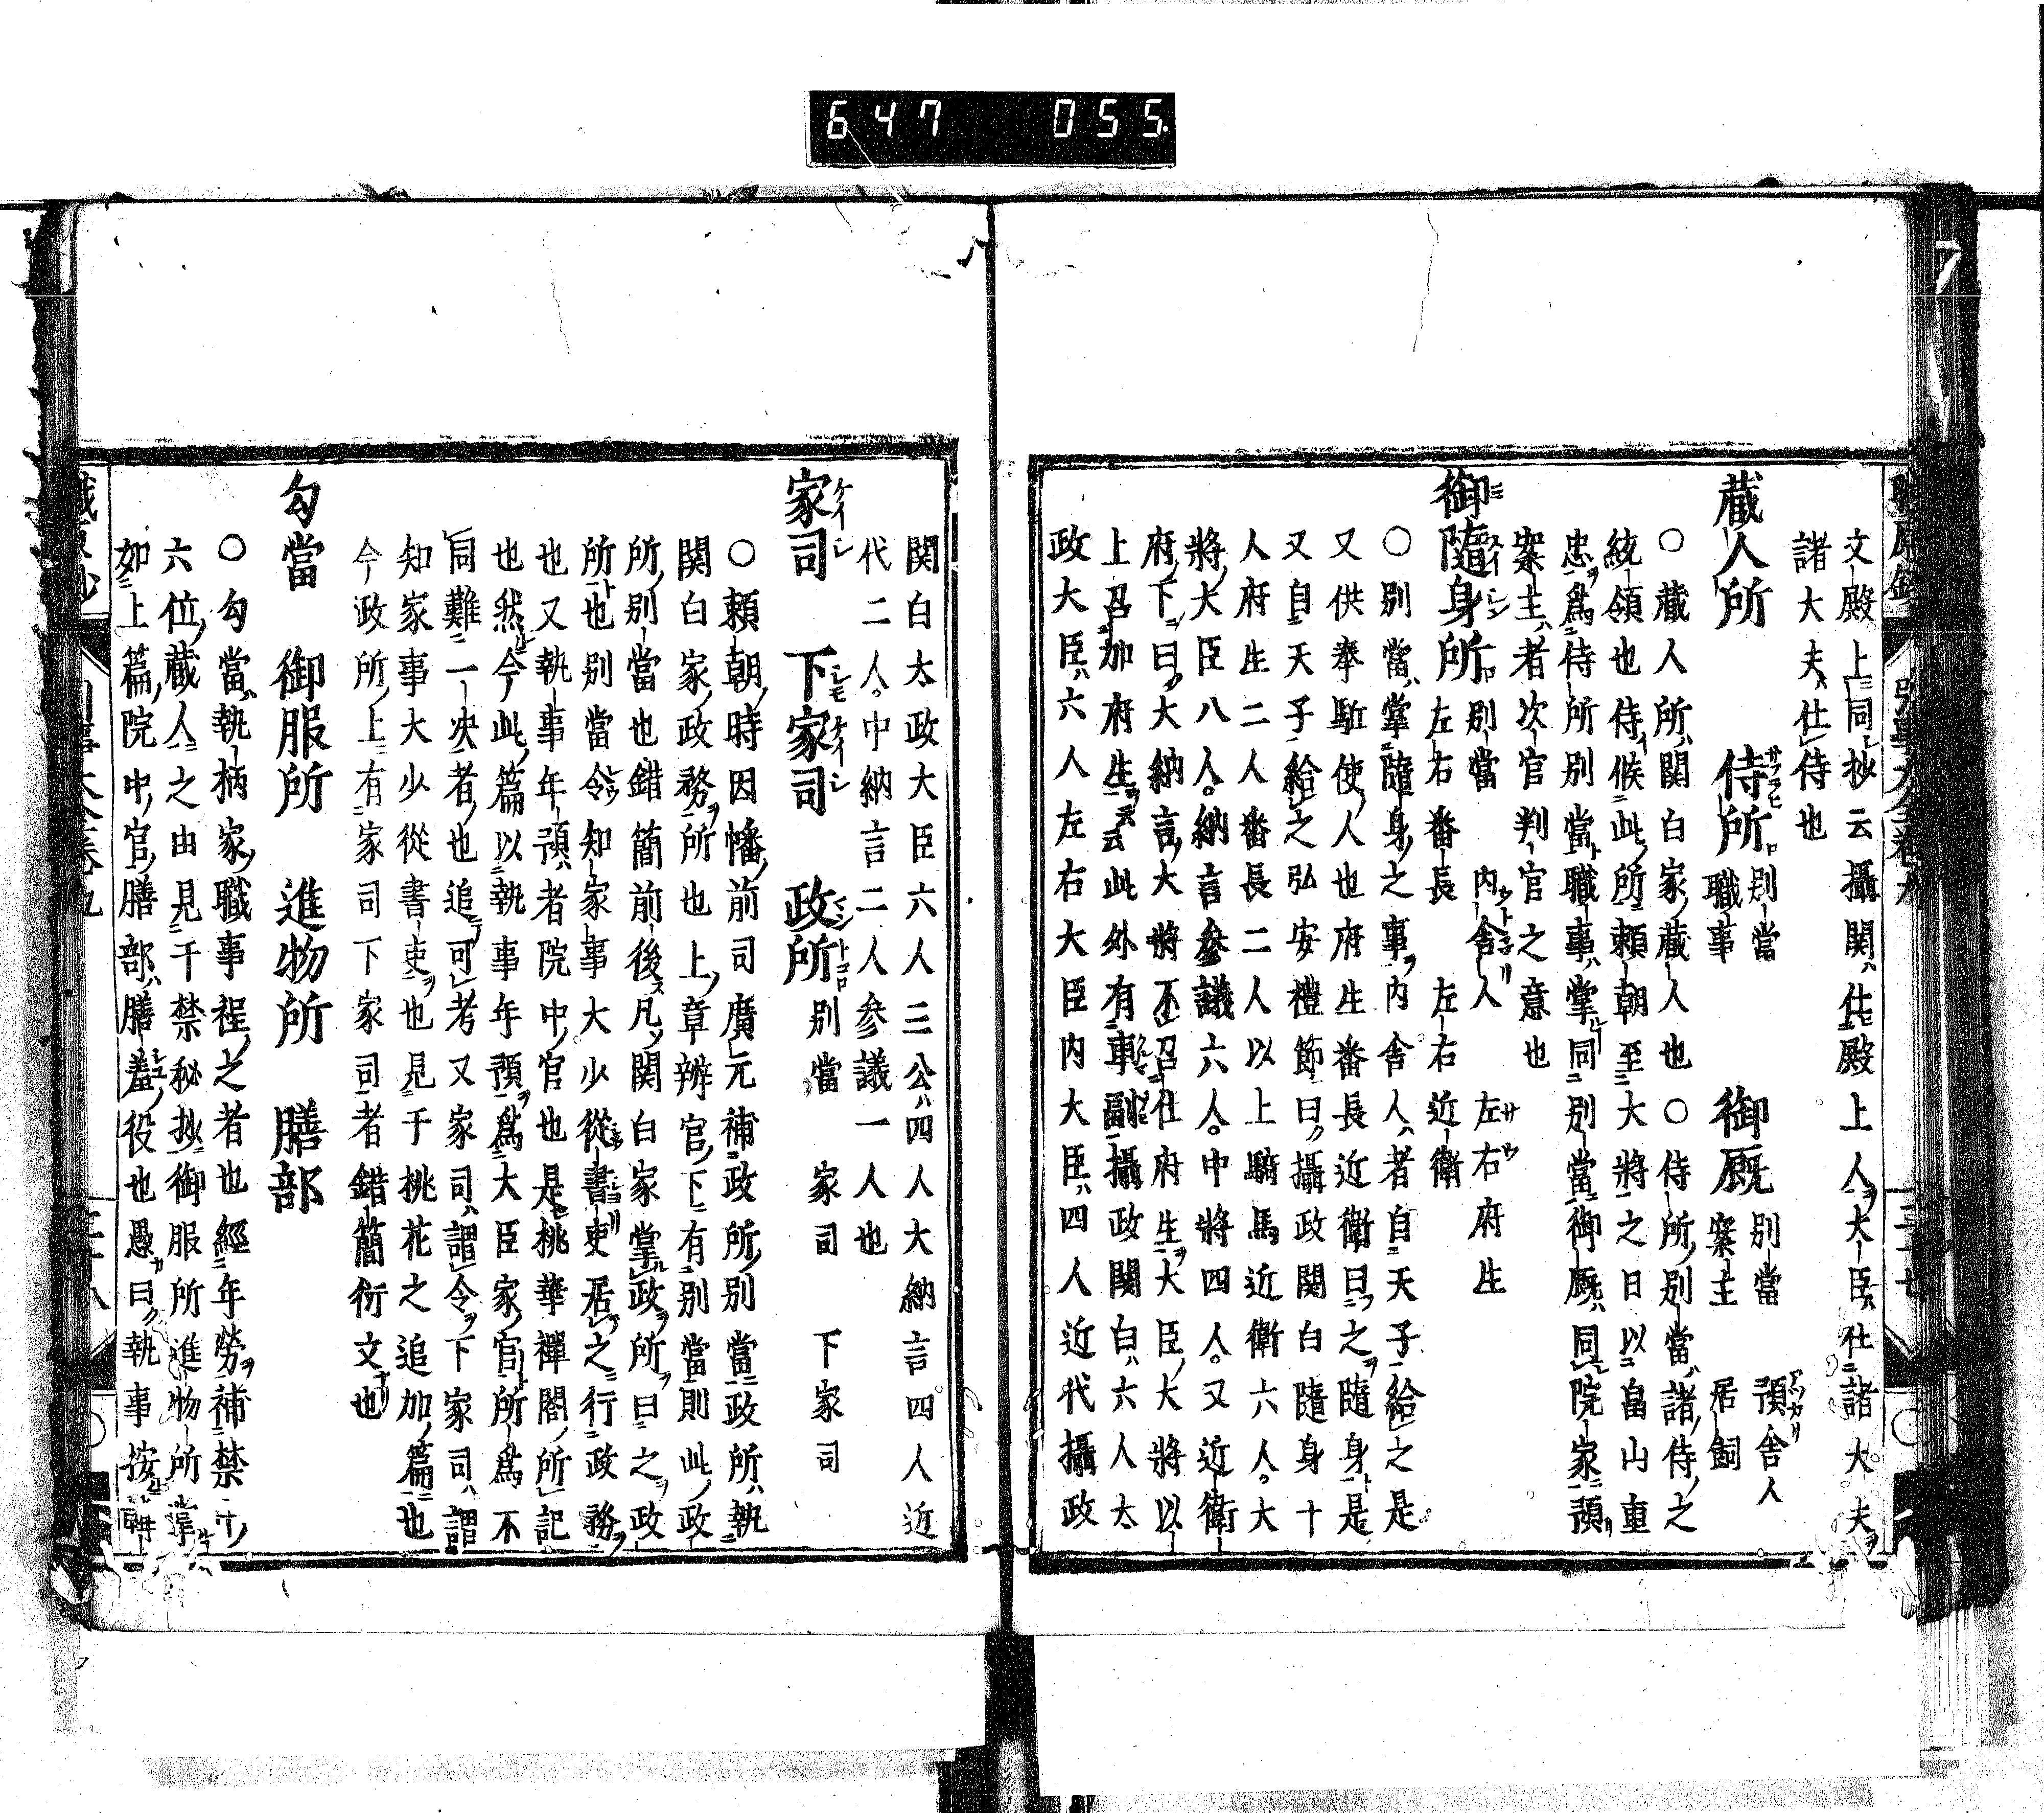 647 055.
文殿上同抄云攝関仕殿上人大臣仕諸大夫
諸大夫仕侍也
蔵人所 侍所 別當 職事 御厩 別當 案主 預舎人 居飼
○蔵人所関白家蔵人也○侍所別當諸侍之
統領也侍候此所頼朝至大將之日以畠山重
忠爲侍所別當職事掌同別當御厩同院家預
案主者次官判官之意也
御隨身所 別當 内舎人 左右府生 左右番長 左右近衛
○別當掌隨身之事内舎人者自天子給之是
又供奉駈使人也府生番長近衛曰之隨身是
又自天子給之弘安禮節曰攝政関白隨身十
人府生二人番長二人以上騎馬近衛六人大
將大臣八人納言參議六人中將四人又近衛
府下曰大納言大將不召仕府生大臣大將以
上召加府生云云此外有車副攝政関白六人太
政大臣六人左右大臣内大臣四人近代攝政
関白太政大臣六人三公四人大納言四人近
代二人中納言二人参議一人也
家司 下家司 政所 別當 家司 下家司
○頼朝時因幡前司廣元補政所別當政所執
関白家政務所也上章辨官下有別當則此政
所別當也錯簡前後凡関白家掌政所曰之政
所也別當令知家事大少從書吏居之行政務
也又執事年預者院中官也是桃華禪閤所記
也然今此篇以執事年預爲大臣家官所爲不
同難一决者也追可考又家司謂令下家司謂
知家事大少從書吏也見于桃花之追加篇也
今政所上有家司下家司者錯簡衍文也
勾當 御服所 進物所 膳部
○勾當執柄家職事程之者也經年勞補禁中
六位蔵人之由見于禁秘抄御服所進物所掌
如上篇院中官膳部膳羞役也愚曰執事按